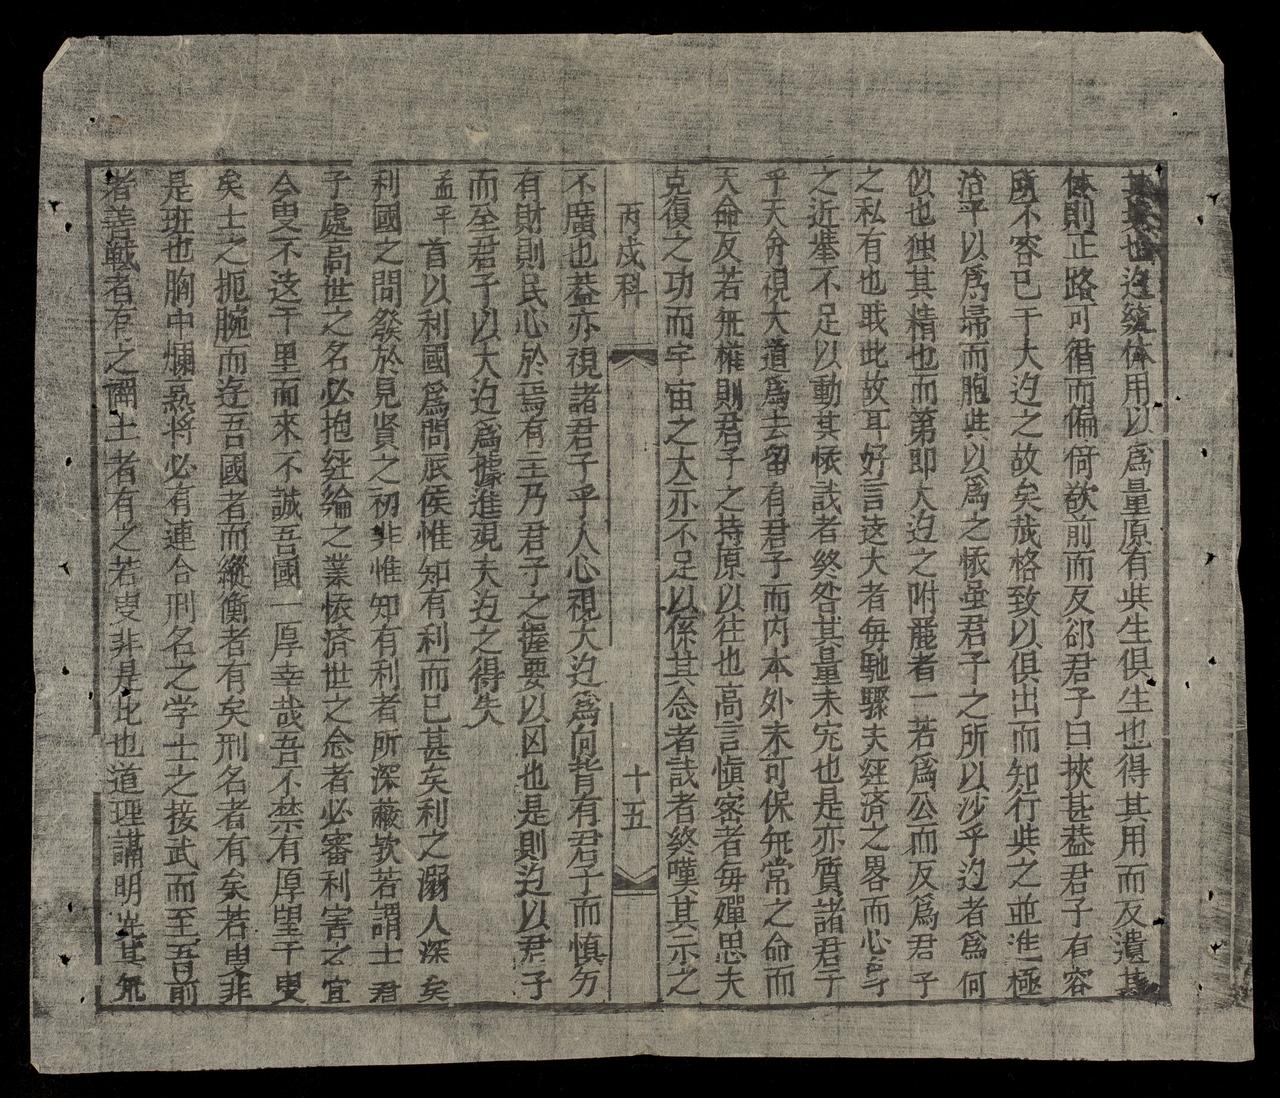 也道統体用以為量原有與生俱生也得其用而反遺其
体則正路可循而偏倚欲前而反郤君子曰挾甚蓋君子有容
所不容已于大边之故矣哉格致以俱出而知行與之並進極
治平以為帰而胞與以為之懷虽君子之所以沙乎边者為何
似也独其精也而第即大边之附麗者一若為公而反為君子
之私有也哉此故耳好言这大者每馳驟夫経済之畧而心身
之近挙不足以動其懷哉者終咎其量未完也是亦質諸君于
乎天命視大道為去留有君子而内本外末可保無常之命而
天命反若無權則君子之持原以往也高言慎密者每嬋思夫
克復之功而宇宙之大亦不足以係其念者哉者終嘆其示之
丙戌科 十五
不廣也蓋亦視諸君子乎人心視大边為向背有君子而慎方
有財則民心於焉有主乃君子之握要以図也是則边以君子
而至君子以大边為據進观夫边之得失
孟平 首以利國為問辰侯惟知有利而已甚矣利之溺人深矣
利國之間發於見賢之初非惟知有利者所深蔽欤若謂士君
子處高世之名必抱経綸之業懷済世之念者必審利害之宜
今叟不遠千里而來不誠吾國一厚幸哉吾不禁有厚望于叟
矣士之扼腕而逆吾國者而縱衡者有矣刑名者有矣若叟非
是班也胸中爛熟将必有連合刑名之学士之接武而至吾前
者善戰者有之闢土者有之若叟非是比也道理講明尭其